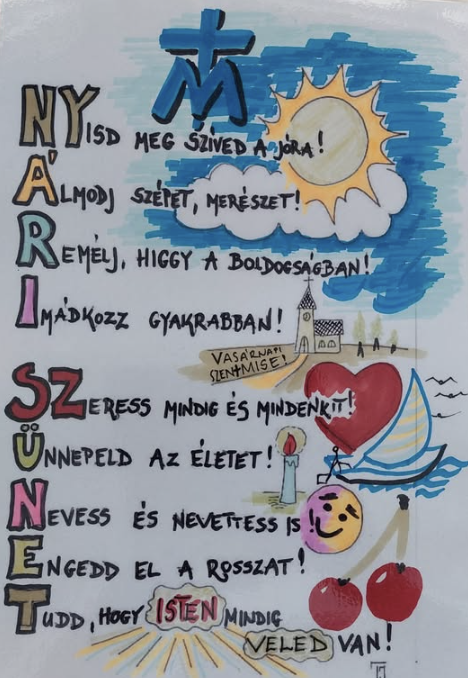 NYISD MEG SZÍVED A JÓRA!
ÁLMODJ SZÉPET, MERÉSZET!
REMÉLJ, HIGGY A BOLDOGSÁGBAN!
IMÁDKOZZ GYAKRABBAN!
VASÁRNAPI
SZENTMISE!
SZERESS MINDIG ÉS MINDENKIT!
ÜNNEPELD AZ ÉLETET!
NEVESS ÉS NEVETTESS IS!
ENGEDD EL A ROSSZAT!
TUDD, HOGY ISTEN MINDIG
VELED VAN!